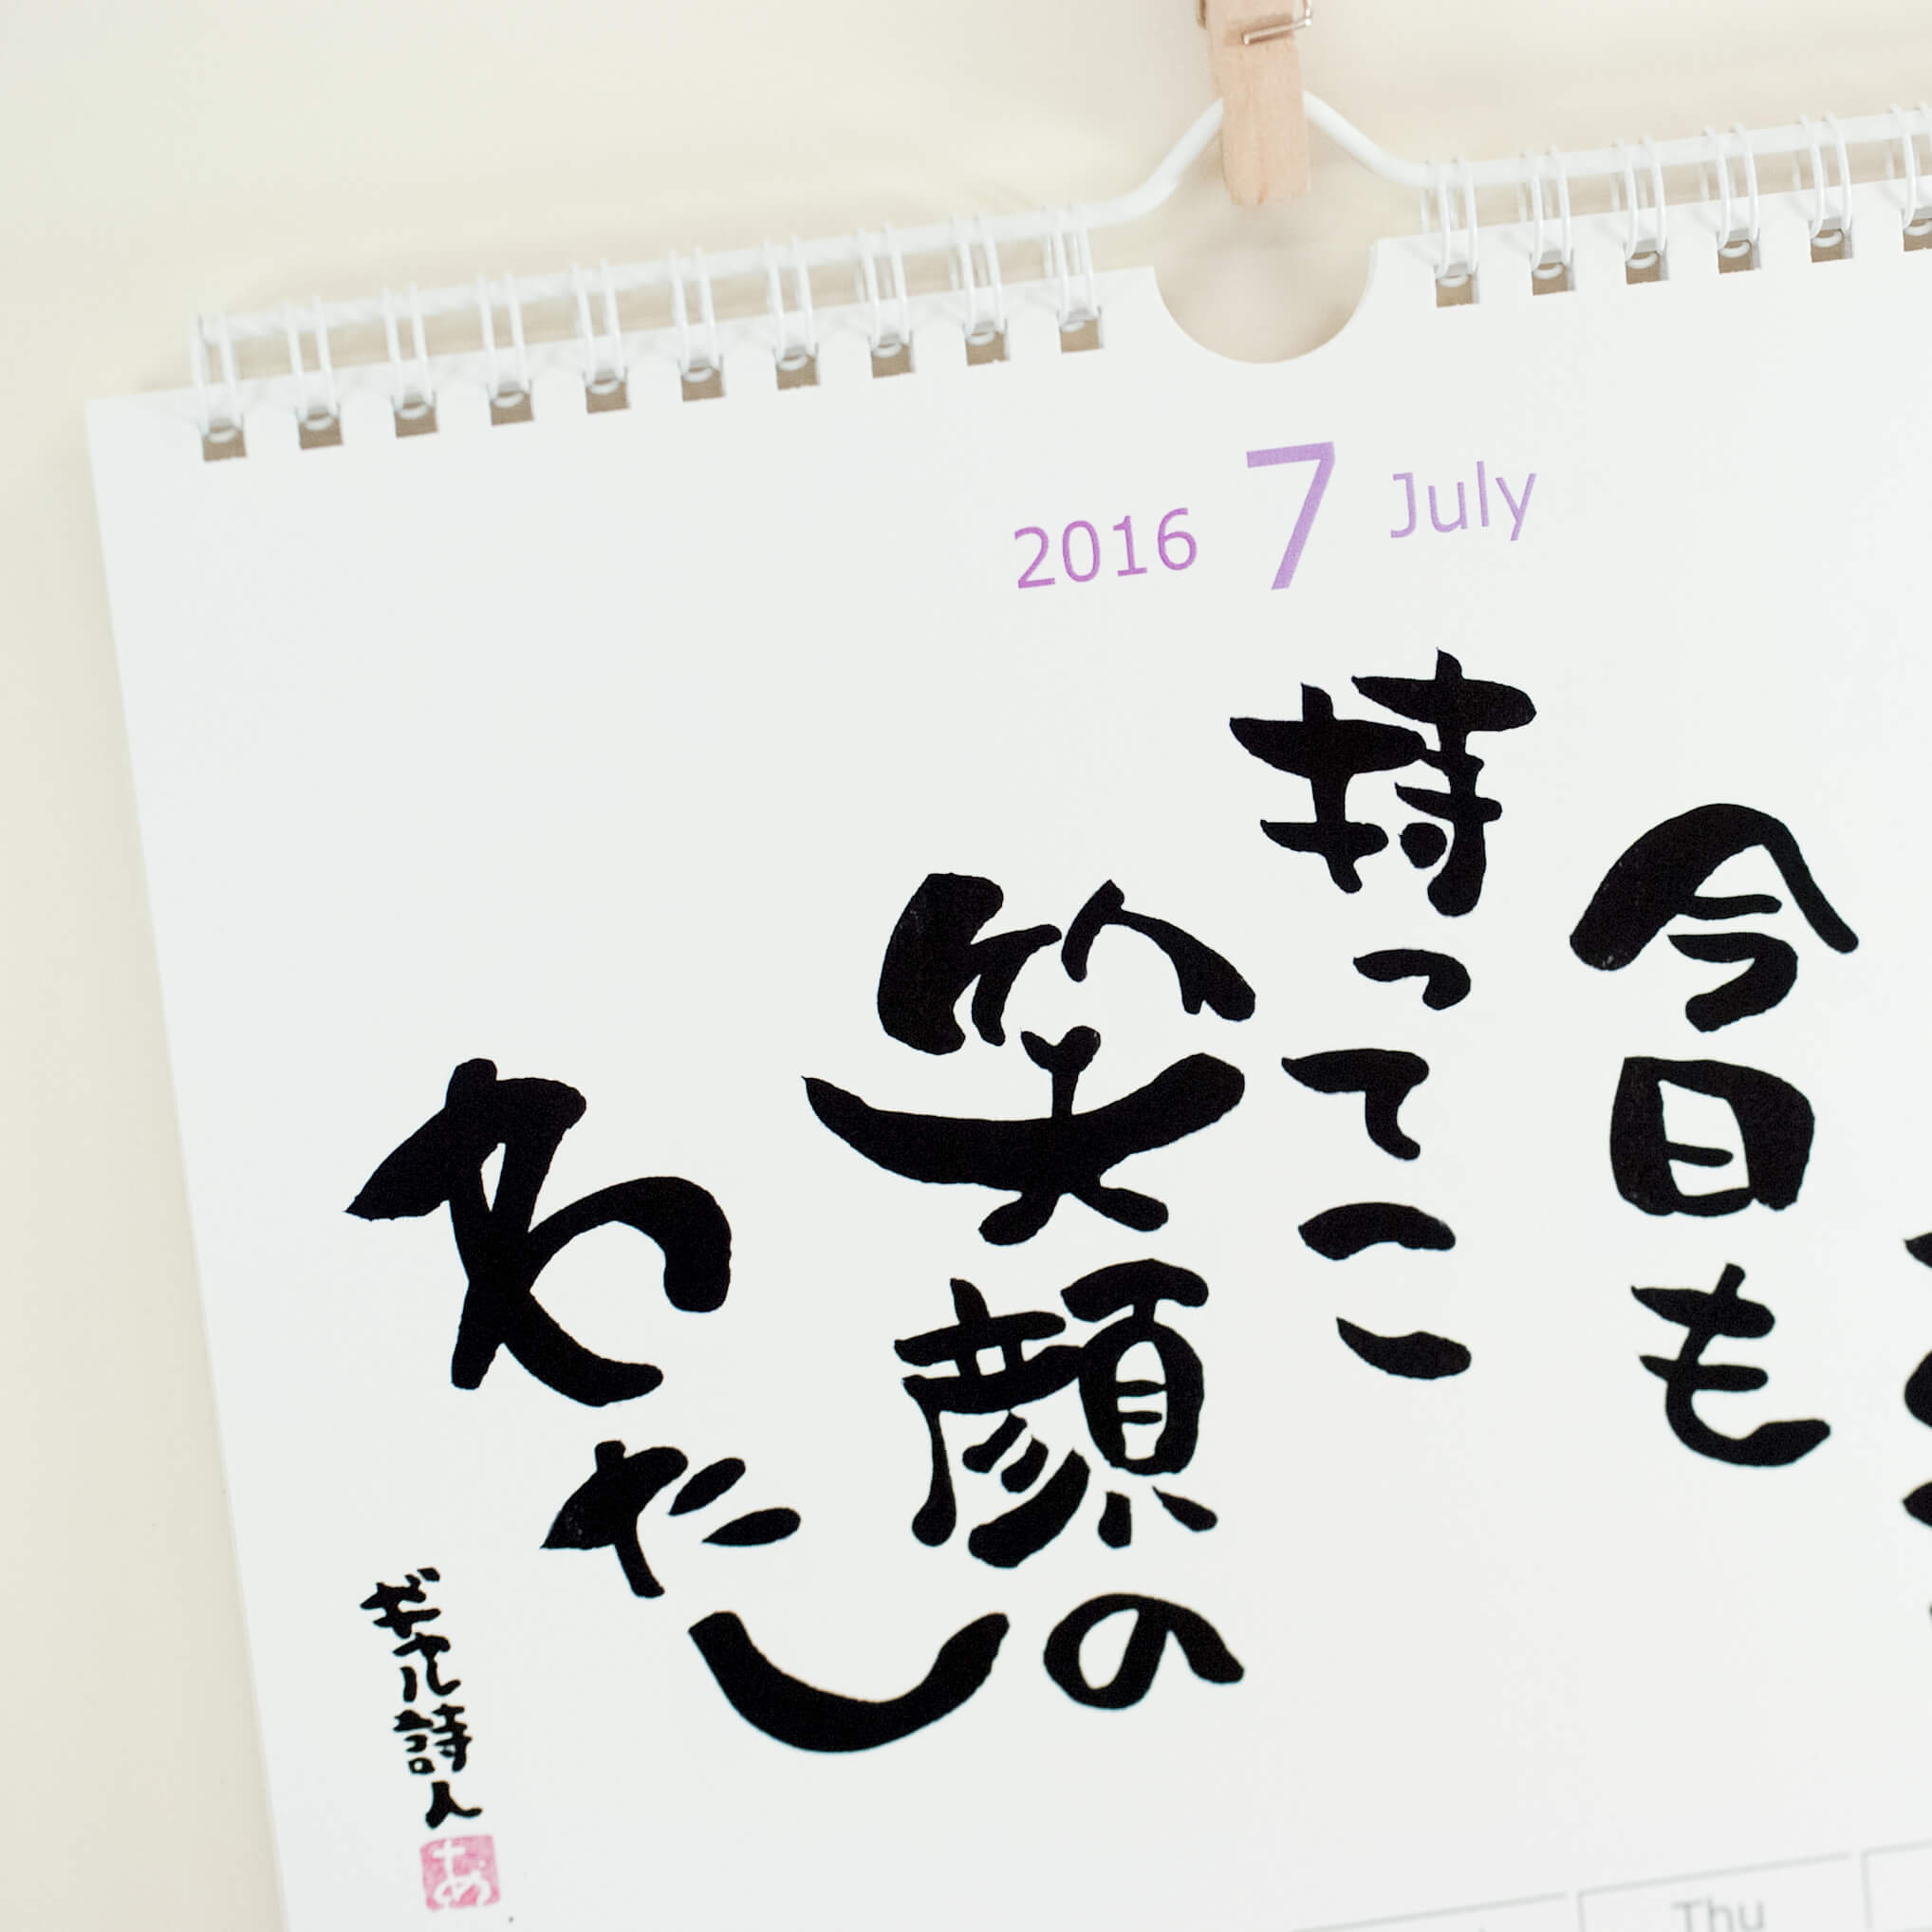 2016 7 July
今日も
持ってこい
笑顔の
わたし
ギャル詩人
あ
Thu